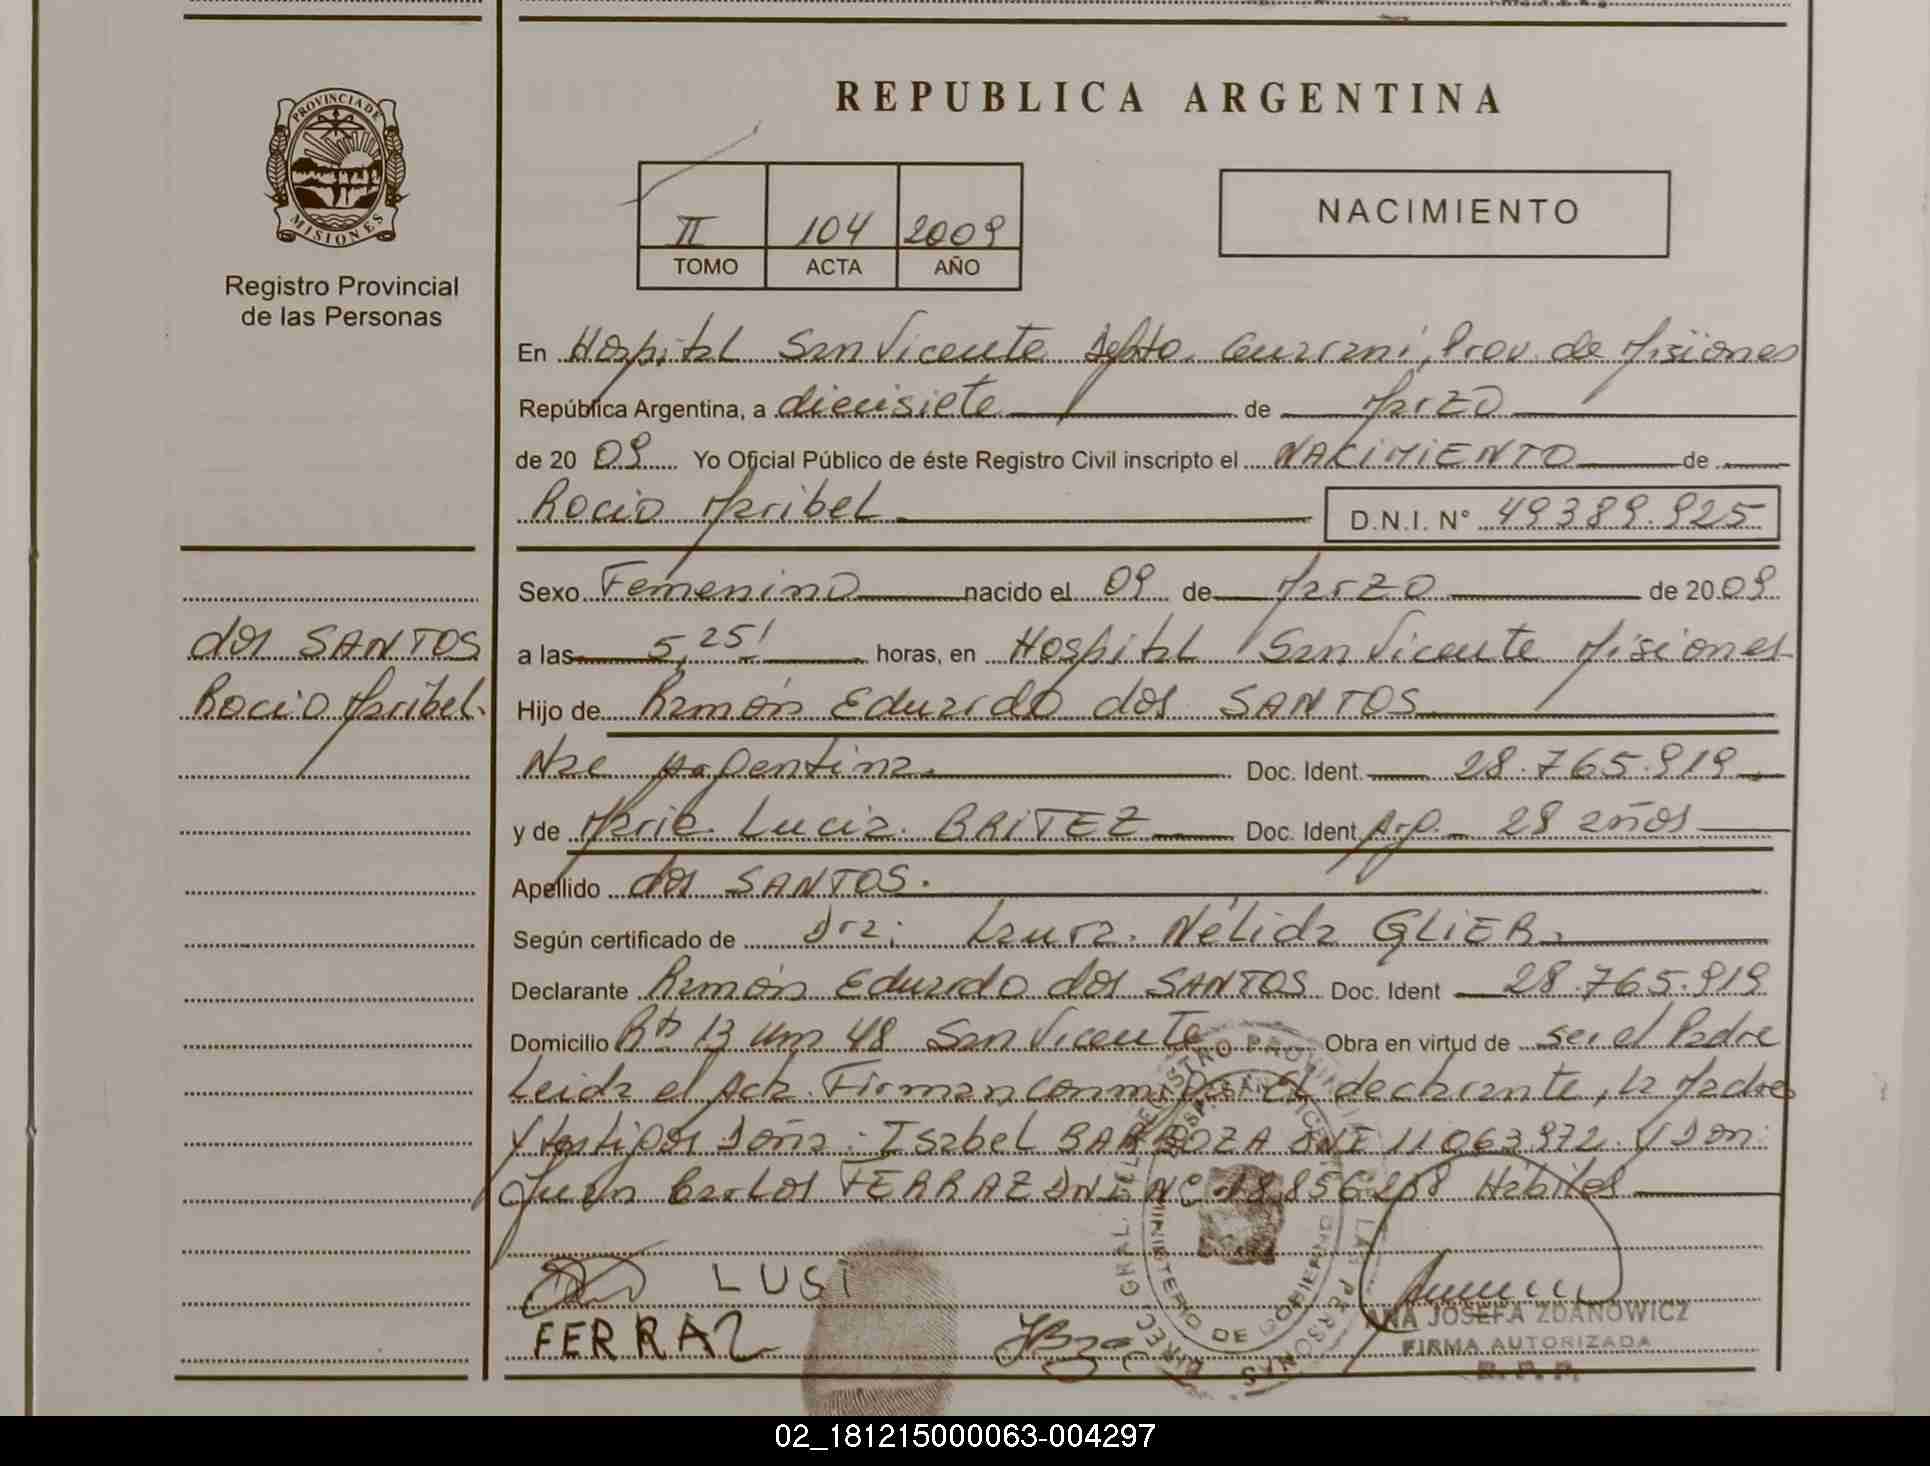 PROVINCIA DE
MISIONES
Registro Provincial
de las Personas
dos SANTOS
Rocio Maribel.
REPUBLICA ARGENTINA
II 104 2009
TOMO ACTA AÑO
NACIMIENTO
En Hospital San Vicente Depto. Guarani, Prov. de Misiones
República Argentina, a diecisiete de Marzo
de 20 09 Yo Oficial Público de éste Registro Civil inscripto el NACIMIENTO de
Rocio Maribel D.N.I. N° 49389.925
Sexo Femenino nacido el 09 de Marzo de 20 09
a las 5,25' horas, en Hospital San Vicente Misiones
Hijo de Ramón Eduardo dos SANTOS
Nac Argentina. Doc. Ident. 28.765.919
y de Maria Lucia BRITEZ Doc. Ident. Arg. 28 años
Apellido dos SANTOS.
Según certificado de Dra: Laura Nélida GLIER.
Declarante Ramón Eduardo dos SANTOS Doc. Ident 28.765.919
Domicilio Rta 13 Km 48 San Vicente Obra en virtud de ser el Padre
Leida el Acta. Firman conmigo El declarante, la Madre
y testigos Doña: Isabel BARBOZA DNI 11.063.972 y Don:
Juan Carlos FERRAZ DNI N° Hábiles
LUSI
FERRAZ
ANA JOSEFA ZDANOWICZ
FIRMA AUTORIZADA
R.P.P.
DIREC. GRAL. DEL REGISTRO PROVINCIAL DE LAS PERSONAS
MINISTERIO DE GOBIERNO
02_181215000063-004297